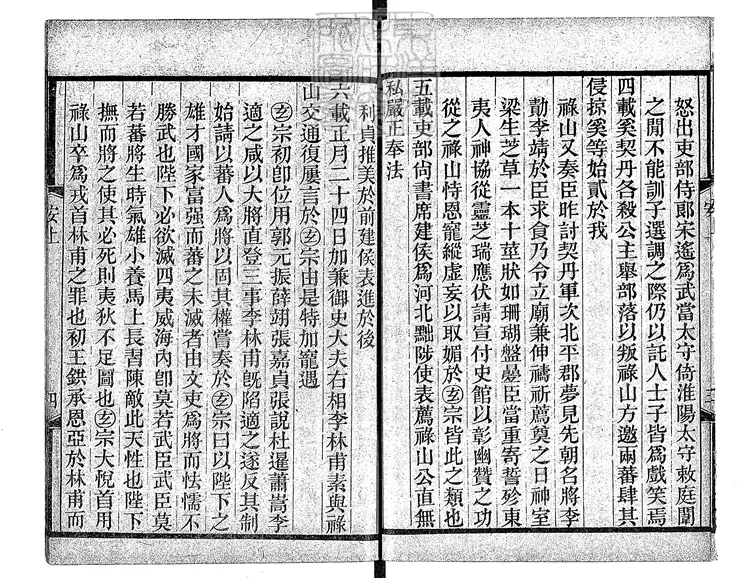 怒出吏部侍郞宋遙爲武當太守倚淮陽太守敕庭闈
之閒不能訓子選調之際仍以託人士子皆爲戲笑焉
四載奚契丹各殺公主舉部落以叛祿山方邀兩蕃肆其
侵掠奚等始貳於我
祿山又奏臣昨討契丹軍次北平郡夢見先朝名將李
勣李靖於臣求食乃令立廟兼伸禱祈薦奠之日神室
梁生芝草一本十莖狀如珊瑚盤疊臣當重寄誓殄東
夷人神協從靈芝瑞應伏請宣付史館以彰幽贊之功
從之祿山恃恩寵縱虛妄以取媚於玄宗皆此之類也
五載吏部尙書席建侯爲河北黜陟使表薦祿山公直無
私嚴正奉法
利貞推美於前建侯表進於後
六載正月二十四日加兼御史大夫右相李林甫素與祿
山交通復屢言於玄宗由是特加寵遇
玄宗初卽位用郭元振薛翊張嘉貞張說杜暹蕭嵩李
適之咸以大將直登三事李林甫旣陷適之遂反其制
始請以蕃人爲將以固其權嘗奏於玄宗曰以陛下之
雄才國家富强而蕃之未滅者由文吏爲將而怯懦不
勝武也陛下必欲滅四夷威海內卽莫若武臣武臣莫
若蕃將生時氣雄小養馬上長習陳敵此天性也陛下
撫而將之使其必死則夷狄不足圖也玄宗大悅首用
祿山卒爲戎首林甫之罪也初王鉷承恩亞於林甫而
安上
三
安上
四